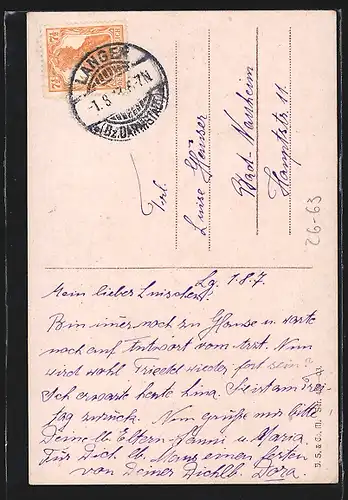 LANGEN
-1.8.17.6-7N
(Bz. DARMSTADT)
7½
Frl.
Luise Häuser
Bad-Nauheim
Hauptstr. 11
26-63
Lg. 1.8.7.
Mein liebes Luischen!
Bin imer noch zu Hause u. warte
noch auf Antwort vom Arzt. Nun
wird wohl Friedel wieder fort sein?
Ich erwarte heute Lina. Sie ist am
tag zurück. Nun grüße mir bitte
Deine lb. Eltern u. Maria
Für Dich lb. einen festen
von Deiner Dichlb. Dora.